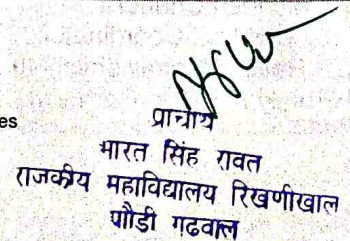 es
प्राचार्य
भारत सिंह रावत
राजकीय महाविद्यालय रिखणीखाल
पौडी गढवाल